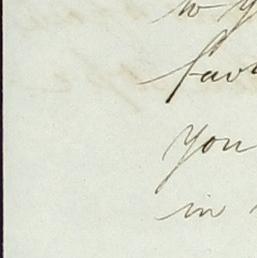 to y
favo
you
in